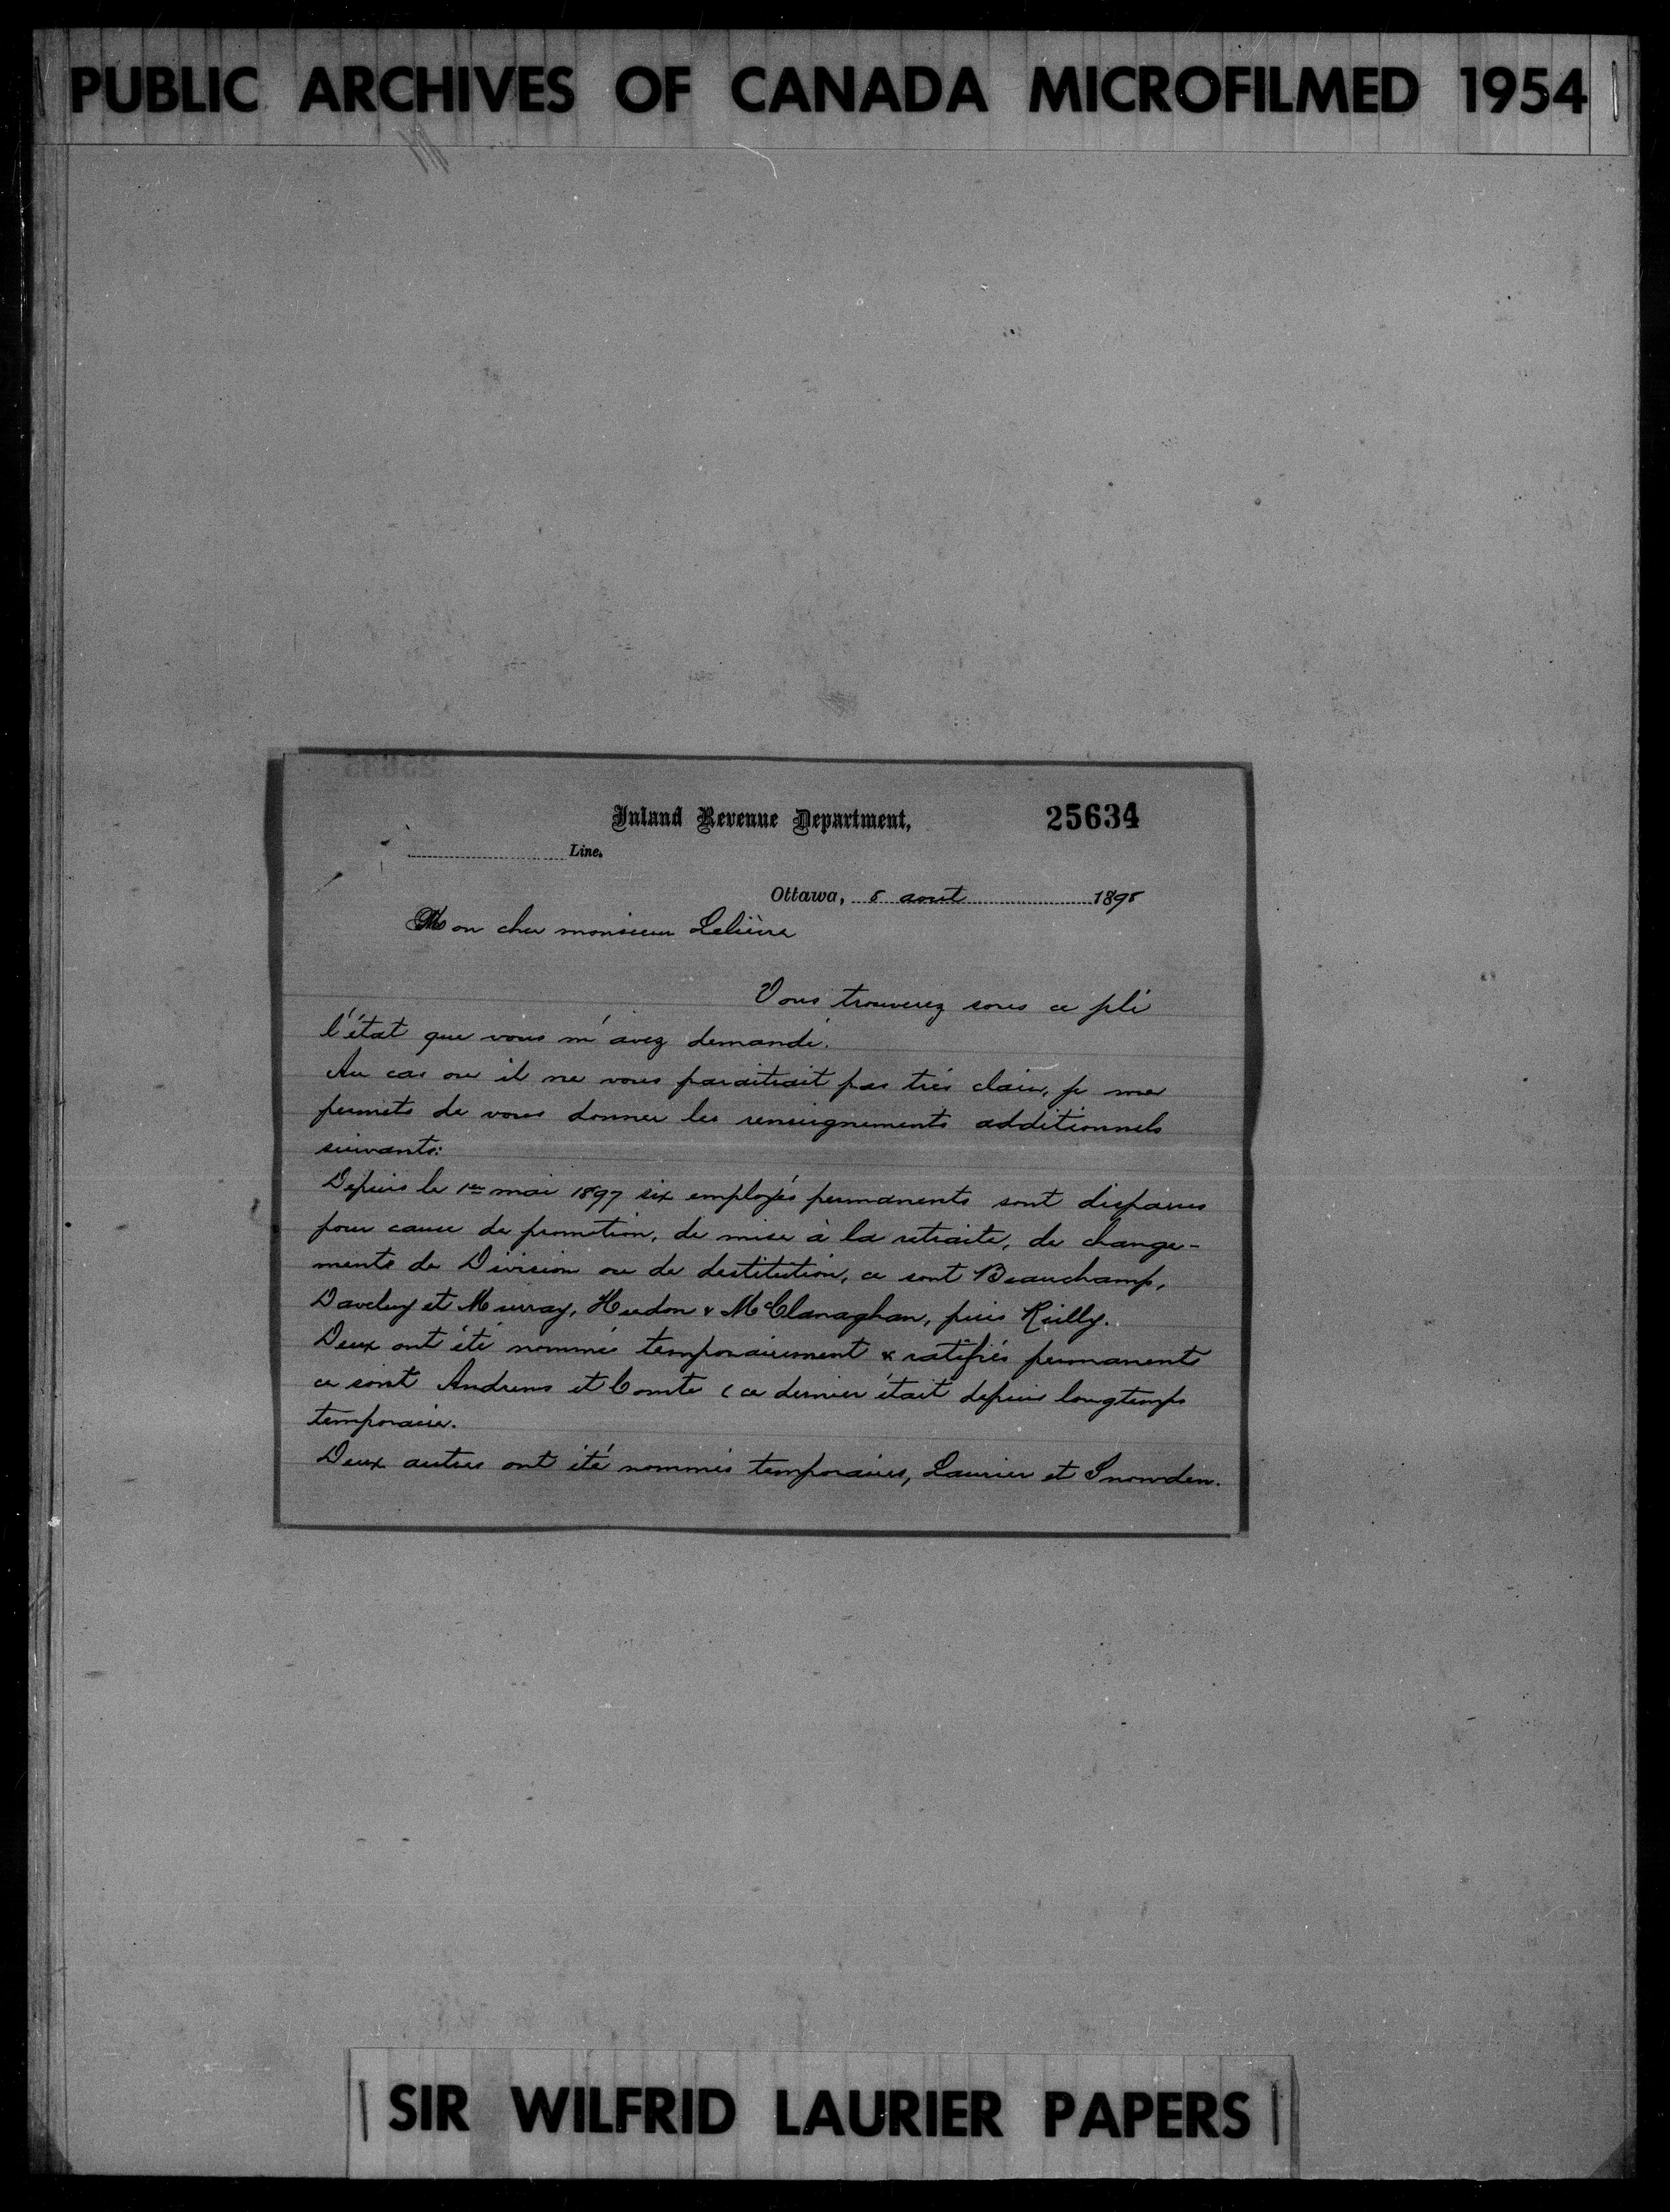 PUBLIC ARCHIVES OF CANADA MICROFILMED 1954
Inland Revenue Department,
25634
Line.
Ottawa, 8 aout 1898
Mon cher monsieur Lelièvre
Vous trouverez sous ce pli
l'état que vous m'avez demandé.
Au cas ou il ne vous paraitrait pas très clair, je me
permets de vous donner les renseignements additionnels
suivants:
Depuis le 1er mai 1897 six employés permanents sont disparus
pour cause de promotion, de mise à la retraite, de change-
ments de Division ou de destitution, ce sont Beauchamp,
Daveluy et Murray, Hudon & McClanaghan, puis Reilly.
Deux ont été nommés temporairement & ratifiés permanents
ce sont Andrews et Comte (ce dernier était depuis longtemps
temporaire.
Deux autres ont été nommés temporaires, Laurier et Snowden.
SIR WILFRID LAURIER PAPERS